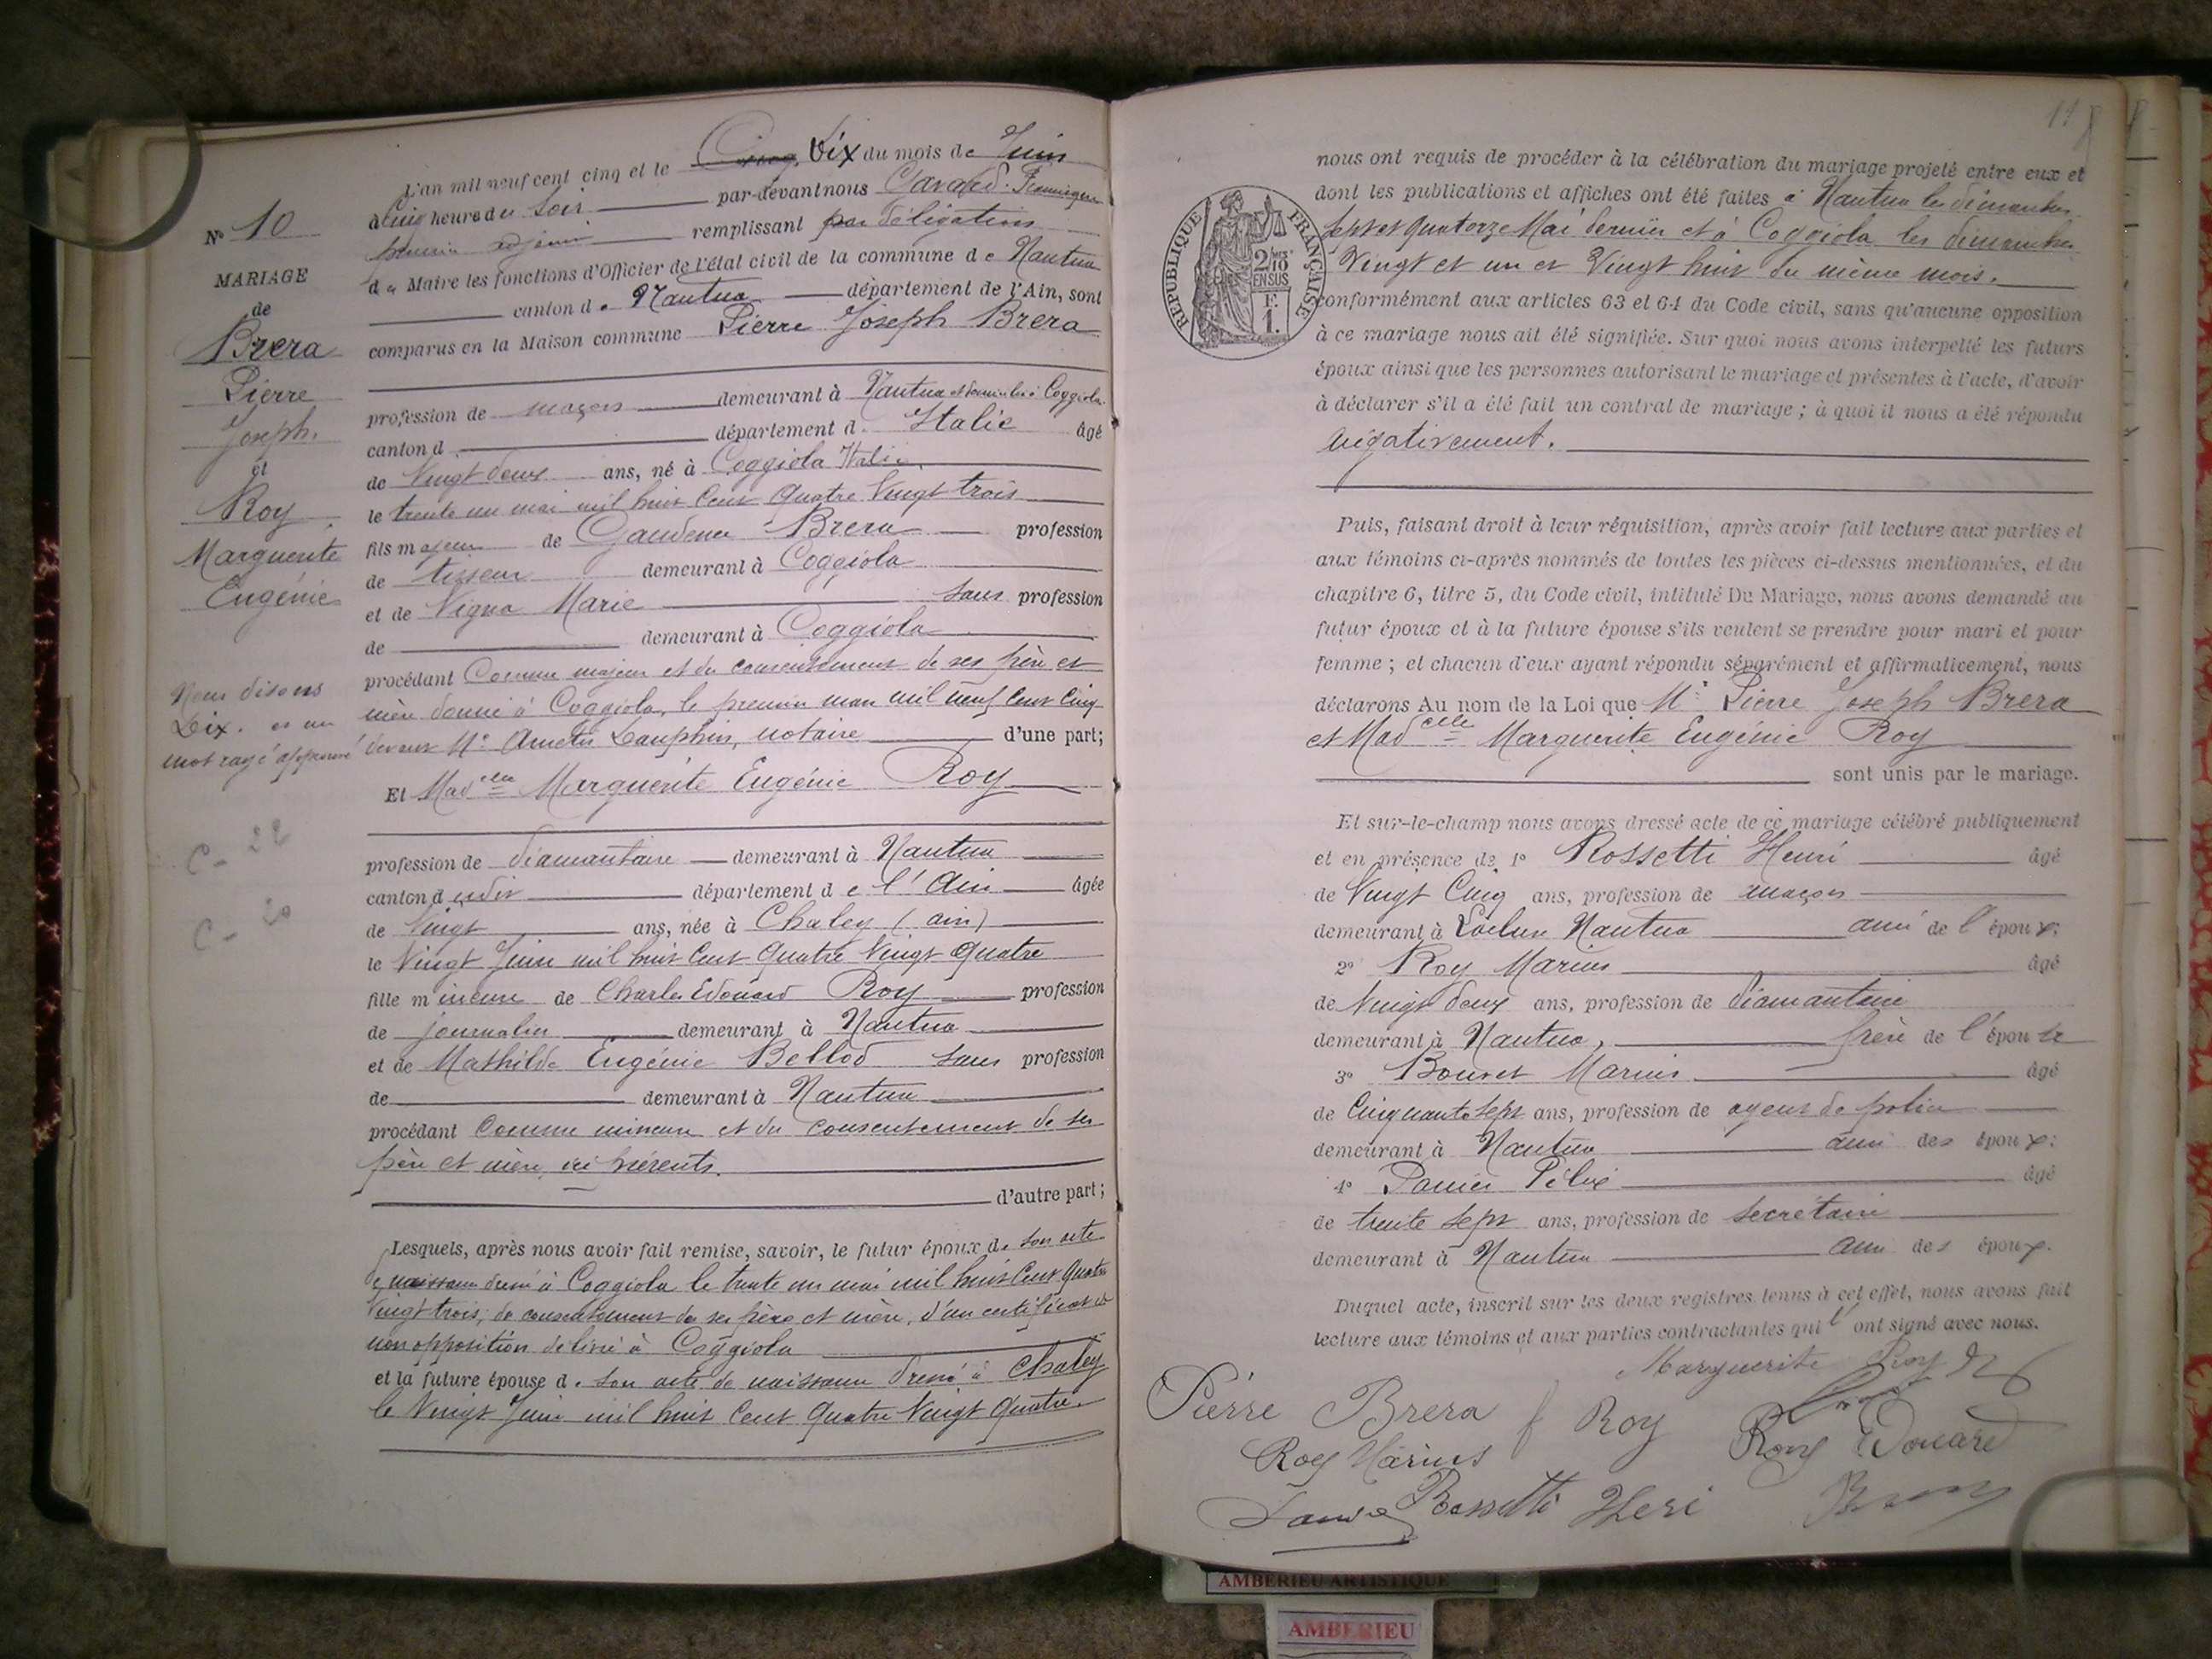 N° 10
MARIAGE
de
Brera
Pierre
Joseph.
et
Roy
Marguerite
Eugénie
Nous disons
Dix. et un
mot rayé approuvé
C - 22
C - 20
L'an mil neuf cent cinq et le Cinq Dix du mois de Juin
à Cinq heure du Soir par-devant nous
adjoint remplissant par délégation
de Maire les fonctions d'Officier de l'état civil de la commune de Nantua
canton de Nantua département de l'Ain, sont
comparus en la Maison commune Pierre Joseph Brera
profession de maçon demeurant à Nantua et domicilié à Coggiola
canton d département d. Italie âgé
de Vingt deux ans, né à Coggiola Italie.
le trente un mai mil huit Cent Quatre Vingt trois
fils majeur de Gaudence Brera profession
de tisseur demeurant à Coggiola
et de Vigna Marie Sans profession
de demeurant à Coggiola
procédant Comme majeur et du consentement de ses père et
mère donné à Coggiola, le premier mars mil neuf Cent Cinq
devant Me Dauphin, notaire d'une part;
Et Madelle Marguerite Eugénie Roy
profession de diamantaire demeurant à Nantua
canton d udit département de l'Ain âgée
de Vingt ans, née à Chaley (ain)
le Vingt Juin mil huit Cent Quatre Vingt Quatre
fille mineure de Charles Edouard Roy profession
de journalier demeurant à Nantua
et de Mathilde Eugénie Bellod Sans profession
de demeurant à Nantua
procédant Comme mineure et du consentement de ses
père et mère, ici présents.
d'autre part;
Lesquels, après nous avoir fait remise, savoir, le futur époux d. son acte
de naissance dressé à Coggiola le trente un mai mil huit Cent Quatre
Vingt trois, du consentement de ses père et mère, d'un certificat de
non opposition délivré à Coggiola
et la future épouse d. son acte de naissance dressé à Chaley
le Vingt Juin mil huit Cent Quatre Vingt Quatre.
118
nous ont requis de procéder à la célébration du mariage projeté entre eux et
dont les publications et affiches ont été faites à Nantua les dimanches
sept et quatorze Mai dernier et à Coggiola les dimanches
Vingt et un et Vingt huit du même mois.
conformément aux articles 63 et 64 du Code civil, sans qu'aucune opposition
à ce mariage nous ait été signifiée. Sur quoi nous avons interpellé les futurs
époux ainsi que les personnes autorisant le mariage et présentes à l'acte, d'avoir
à déclarer s'il a été fait un contrat de mariage ; à quoi il nous a été répondu
négativement.
RÉPUBLIQUE FRANÇAISE
2/10 EN SUS
F.
1.
Puis, faisant droit à leur réquisition, après avoir fait lecture aux parties et
aux témoins ci-après nommés de toutes les pièces ci-dessus mentionnées, et du
chapitre 6, titre 5, du Code civil, intitulé Du Mariage, nous avons demandé au
futur époux et à la future épouse s'ils veulent se prendre pour mari et pour
femme ; et chacun d'eux ayant répondu séparément et affirmativement, nous
déclarons Au nom de la Loi que Mr Pierre Joseph Brera
et Madelle Marguerite Eugénie Roy
sont unis par le mariage.
Et sur-le-champ nous avons dressé acte de ce mariage célébré publiquement
et en présence de 1° Rossetti Henri âgé
de Vingt Cinq ans, profession de maçon
demeurant à Nantua ami de l'époux;
2° Roy Marius âgé
de Vingt deux ans, profession de diamantaire
demeurant à Nantua, frère de l'épouse
3° Bouvet Marius âgé
de Cinquante sept ans, profession de agent de police
demeurant à Nantua ami des époux;
4° Félix âgé
de trente sept ans, profession de secrétaire
demeurant à Nantua ami des époux.
Duquel acte, inscrit sur les deux registres tenus à cet effet, nous avons fait
lecture aux témoins et aux parties contractantes qui l'ont signé avec nous.
Marguerite Roy
Pierre Brera f Roy Roy Edouard
Roy Marius
Rossetti Heri
AMBERIEU ARTISTIQUE
AMBERIEU